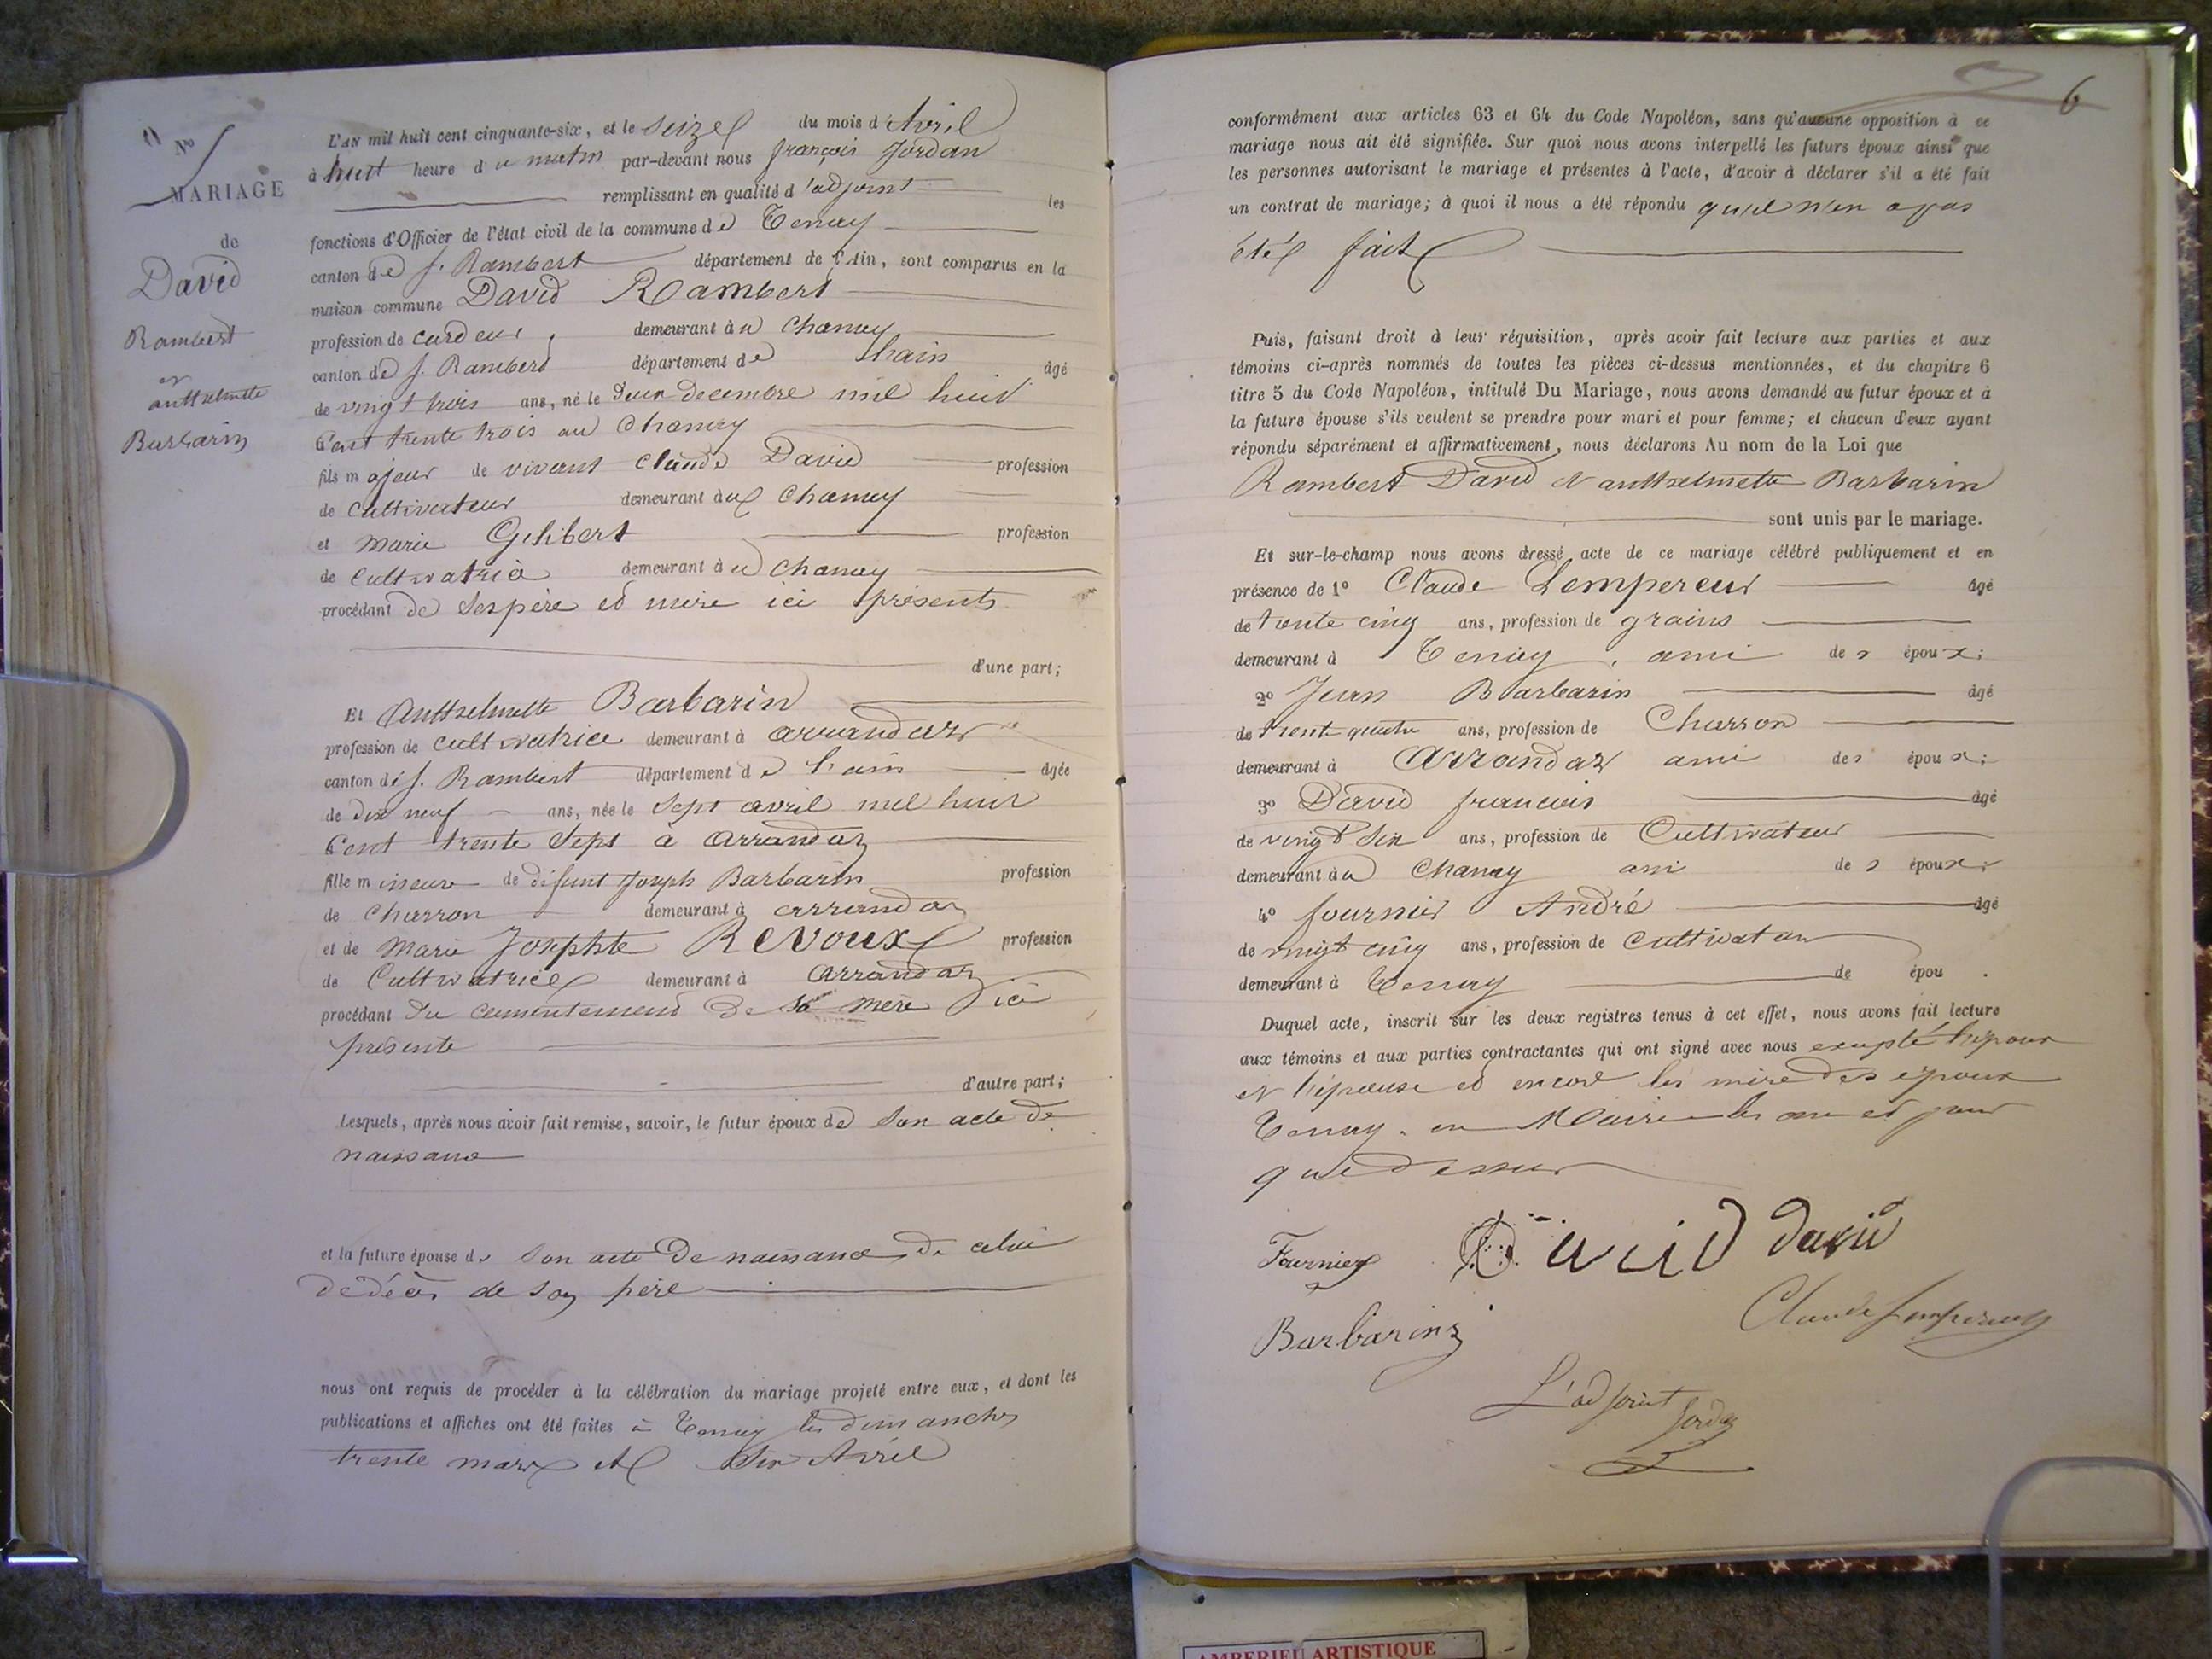 Nº
MARIAGE
de
David
Rambert
et
anthelmette
Barbarin
L'AN mil huit cent cinquante-six, et le seize du mois d'Avril
à huit heure du matin par-devant nous françois Jordan
remplissant en qualité d'adjoint les
fonctions d'Officier de l'état civil de la commune de Tenay
canton de S. Rambert département de l'Ain, sont comparus en la
maison commune David Rambert
profession de cardeur, demeurant au Chanay
canton de S. Rambert département de Lhain âgé
de vingt trois ans, né le deux decembre mil huit
Cent trente trois au Chanay
fils majeur de vivant Claude David profession
de Cultivateur demeurant au Chanay
et marie Gelibert profession
de Cultivatrice demeurant au Chanay
procédant de Ses père et mère ici présents
d'une part;
Et Anthelmette Barbarin
profession de cultivatrice demeurant à arrandaz
canton de S. Rambert département de l'ain âgée
de dix neuf ans, née le Sept avril mil huit
Cent trente Sept à Arrandaz
fille mineure de défunt Joseph Barbarin profession
de Charron demeurant à arrandaz
et de Marie Josephte Revoux profession
de Cultivatrice demeurant à Arrandaz
procédant du consentement de sa mère ici
présente
d'autre part;
Lesquels, après nous avoir fait remise, savoir, le futur époux de Son acte de
naissance
et la future épouse de son acte De naissance de celui
de décès de son père
nous ont requis de procéder à la célébration du mariage projeté entre eux, et dont les
publications et affiches ont été faites à Tenay les dimanches
trente mars et Six Avril
6
conformément aux articles 63 et 64 du Code Napoléon, sans qu'aucune opposition à ce
mariage nous ait été signifiée. Sur quoi nous avons interpellé les futurs époux ainsi que
les personnes autorisant le mariage et présentes à l'acte, d'avoir à déclarer s'il a été fait
un contrat de mariage; à quoi il nous a été répondu qu'il n'en a pas
été fait
Puis, faisant droit à leur réquisition, après avoir fait lecture aux parties et aux
témoins ci-après nommés de toutes les pièces ci-dessus mentionnées, et du chapitre 6
titre 5 du Code Napoléon, intitulé Du Mariage, nous avons demandé au futur époux et à
la future épouse s'ils veulent se prendre pour mari et pour femme; et chacun d'eux ayant
répondu séparément et affirmativement, nous déclarons Au nom de la Loi que
Rambert David et anthelmette Barbarin
sont unis par le mariage.
Et sur-le-champ nous avons dressé acte de ce mariage célébré publiquement et en
présence de 1º Claude Lempereur âgé
de trente cinq ans, profession de grains
demeurant à Tenay, ami des époux;
2º Jean Barbarin âgé
de trent quatre ans, profession de Charron
demeurant à Arrandaz ami des époux;
3º David francois âgé
de vingt Six ans, profession de Cultivateur
demeurant au Chanay ami des époux;
4º fournier André âgé
de vingt cinq ans, profession de Cultivateur
demeurant à Tenay de épou .
Duquel acte, inscrit sur les deux registres tenus à cet effet, nous avons fait lecture
aux témoins et aux parties contractantes qui ont signé avec nous exepté l'epoux
et l'épouse et encore les mère des époux
Tenay. en Mairie les an et jour
que dessus
Fournier David david
Claude Lempereur
Barbarin
L'adjoint
Jordan
AMBERIEU ARTISTIQUE